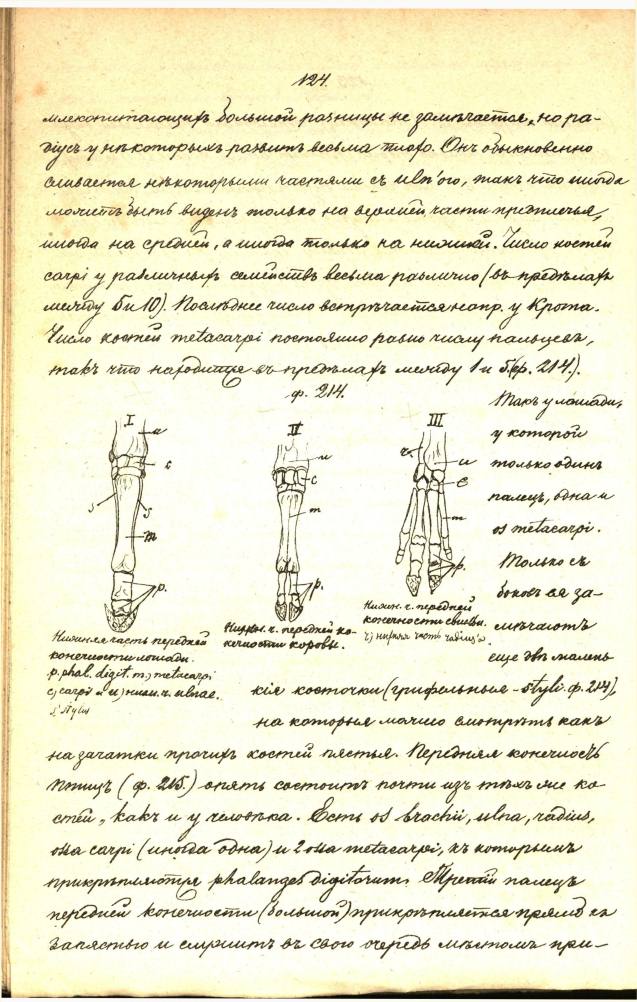 124.
млекопитающихъ большой разницы не замѣчается, но ра-
діусъ у нѣкоторыхъ развитъ весьма плохо. Онъ обыкновенно
сливается нѣкоторыми частями съ uln'ою, такъ что иногда
можетъ быть виденъ только на верхней части предплечья,
иногда на средней, а иногда только на нижней. Число костей
carpi у различныхъ семействъ весьма различно (въ предѣлахъ
между 5 и 10). Послѣднее число встрѣчается напр. у Крота.
Число костей metacarpi постоянно равно числу пальцевъ,
такъ что находится въ предѣлахъ между 1 и 5 (ф. 214).
ф. 214.
I
u
c
s
s
m
p.
II
u
c
m
p.
III
r.
u
c
m
p.
Нижняя часть передней
конечности лошади.
p. phal. digit. m.) metacarpi
c) carpi u) нижн. ч. ulnae.
s) styli
Нижн. ч. передней ко-
нечности коровы.
Нижн. ч. передней
конечности свиньи.
r) нижняя часть radius'a
Такъ у лошади,
у которой
только одинъ
палецъ, одна и
os metacarpi.
Только съ
боковъ ея за-
мѣчаютъ
еще двѣ малень
кія косточки (грифельныя - styli ф. 214),
на которыя можно смотрѣть какъ
на зачатки прочихъ костей пястья. Передняя конечность
птицъ (ф. 215.) опять состоитъ почти изъ тѣхъ же ко-
стей, какъ и у человѣка. Есть os brachii, ulna, radius,
ossa carpi (иногда одна) и 2 ossa metacarpi, къ которымъ
прикрѣпляются phalanges digitorum. Третій палецъ
передней конечности (большой) прикрѣпляется прямо къ
запястью и служитъ въ свою очередь мѣстомъ при-